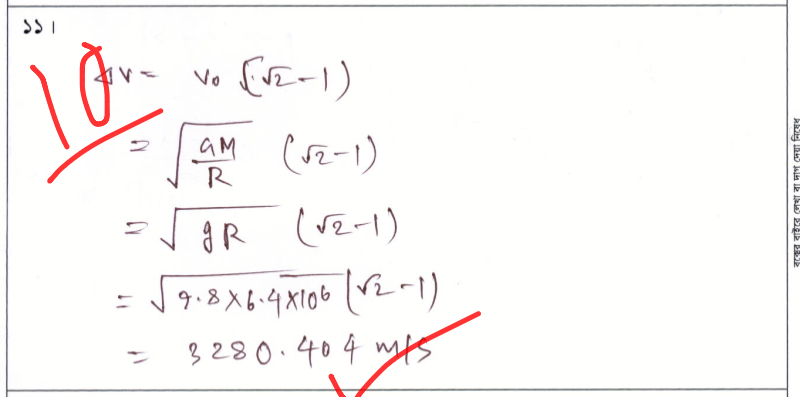 ১১।
10
Δv = v₀ (√2 - 1)
= √(GM/R) (√2 - 1)
= √(gR) (√2 - 1)
= √(9.8 × 6.4 × 10⁶) (√2 - 1)
= 3280.404 m/s
বক্সের বাইরে লেখা বা দাগ দেয়া নিষেধ